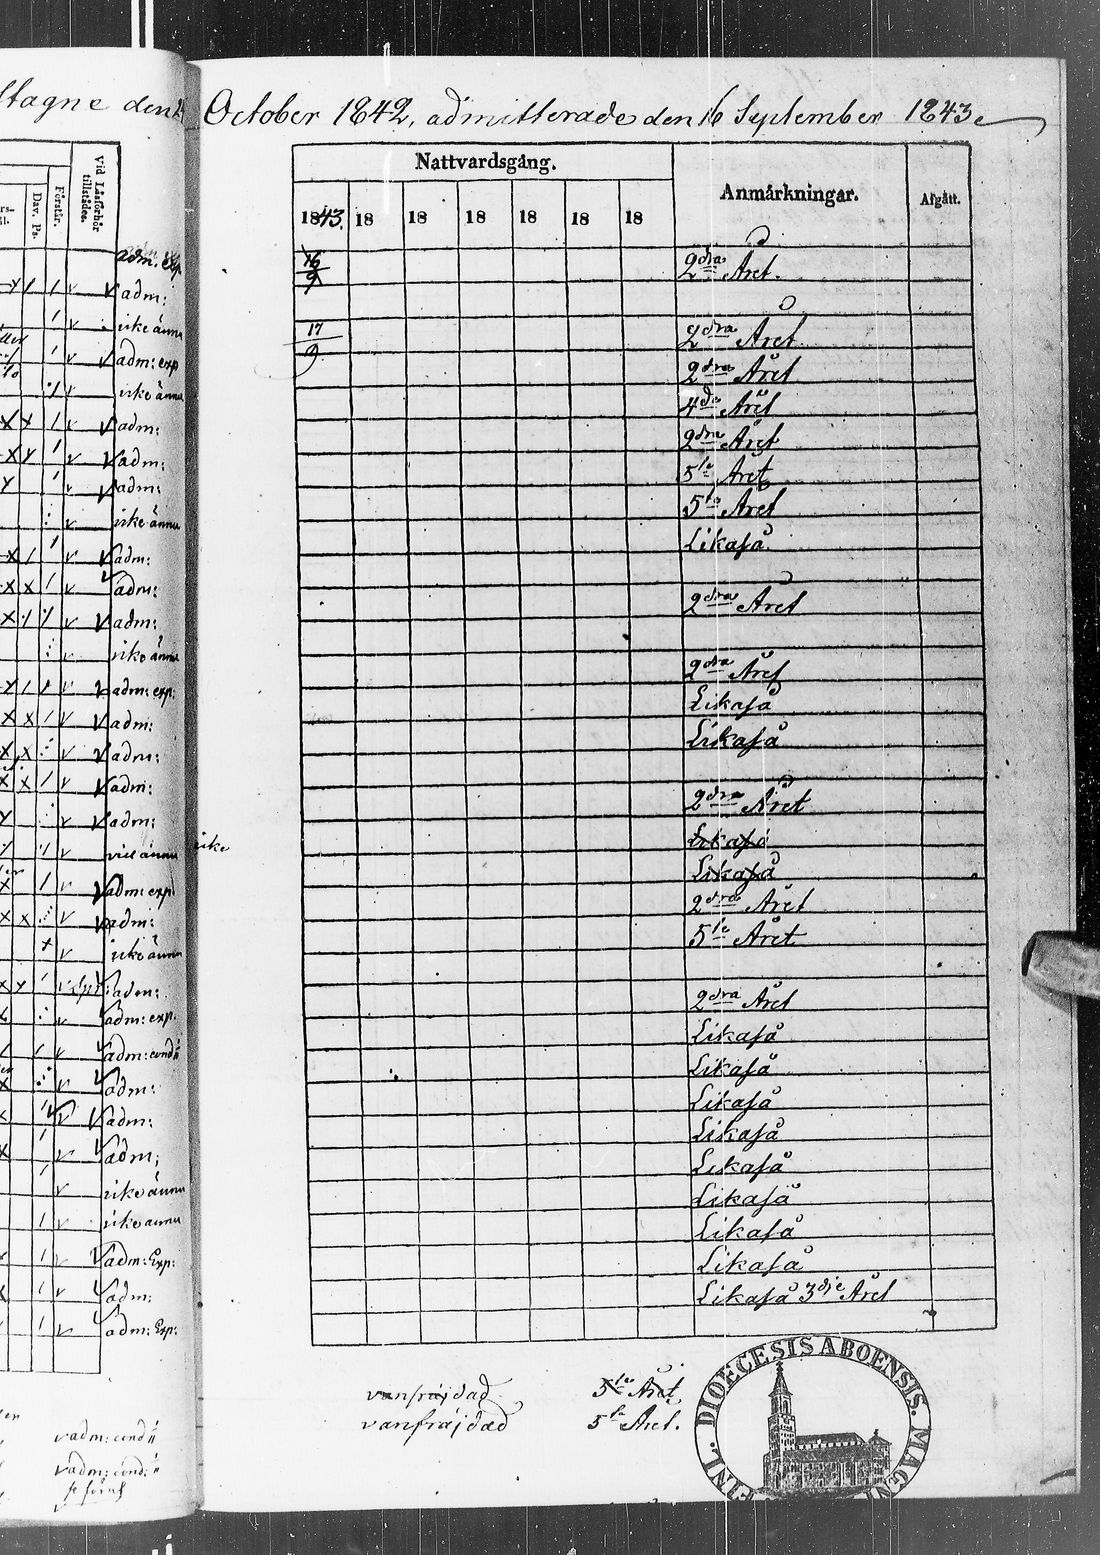 ttagne den October 1842, admitterade den 16 September 1843
Nattvardsgång.
Anmärkningar.
Afgått.
Dav. Ps.
Förstår.
Vid Läsförhör tillstädes.
1843. 18 18 18 18 18
adm: exp
16/9 2dra Året.
adm:
icke ännu
17/9 2dra Året
adm: exp
2dra Året
icke ännu
4de Året
adm:
2dra Året
adm:
5te Året
adm:
5te Året
icke ännu
Likaså
adm:
adm:
2dra Året
adm:
icke ännu
2dra Året
adm: exp:
Likaså
adm:
Likaså
adm:
adm:
2dra Året
adm:
Likaså
ännu icke
Likaså
adm: exp
2dra Året
adm:
5te Året
icke ännu
adm:
2dra Året
adm: exp.
Likaså
adm: cond:
Likaså
adm:
Likaså
adm:
Likaså
adm:
Likaså
icke ännu
Likaså
icke ännu
Likaså
adm: Exp:
Likaså
adm:
Likaså 3dje Året
adm: Exp:
vanfräjdad 5te Året
vanfräjdad 5te Året.
adm: cond:
adm: cond:
DIOECESIS ABOENSIS. MAGN
FINL.